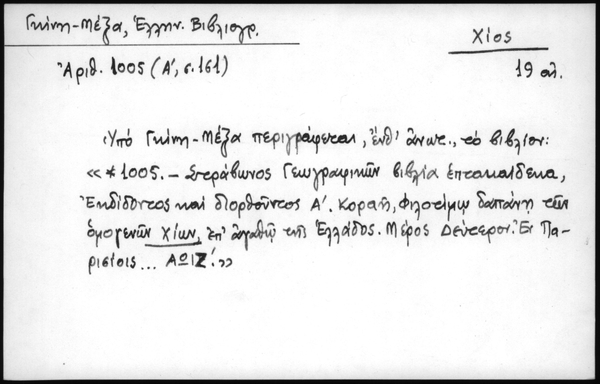 Γκίνη-Μέξα, Ἑλλην. Βιβλιογρ.
Χίος
Ἀριθ. 1005 (Α', σ. 161)
19 αἰ.
Ὑπό Γκίνη-Μέξα περιγράφεται, ἔνθ' ἀνωτ., τό βιβλίον:
«*1005. – Στράβωνος Γεωγραφικῶν βιβλία ἑπτακαίδεκα,
Ἐκδίδοντος καί διορθοῦντος Α'. Κοραῆ, φιλοτίμῳ δαπάνῃ τῶν
ὁμογενῶν Χίων, ἐπ' ἀγαθῷ τῆς Ἑλλάδος. Μέρος Δεύτερον. Ἐν Πα-
ρισίοις... ΑΩΙΖ'.»